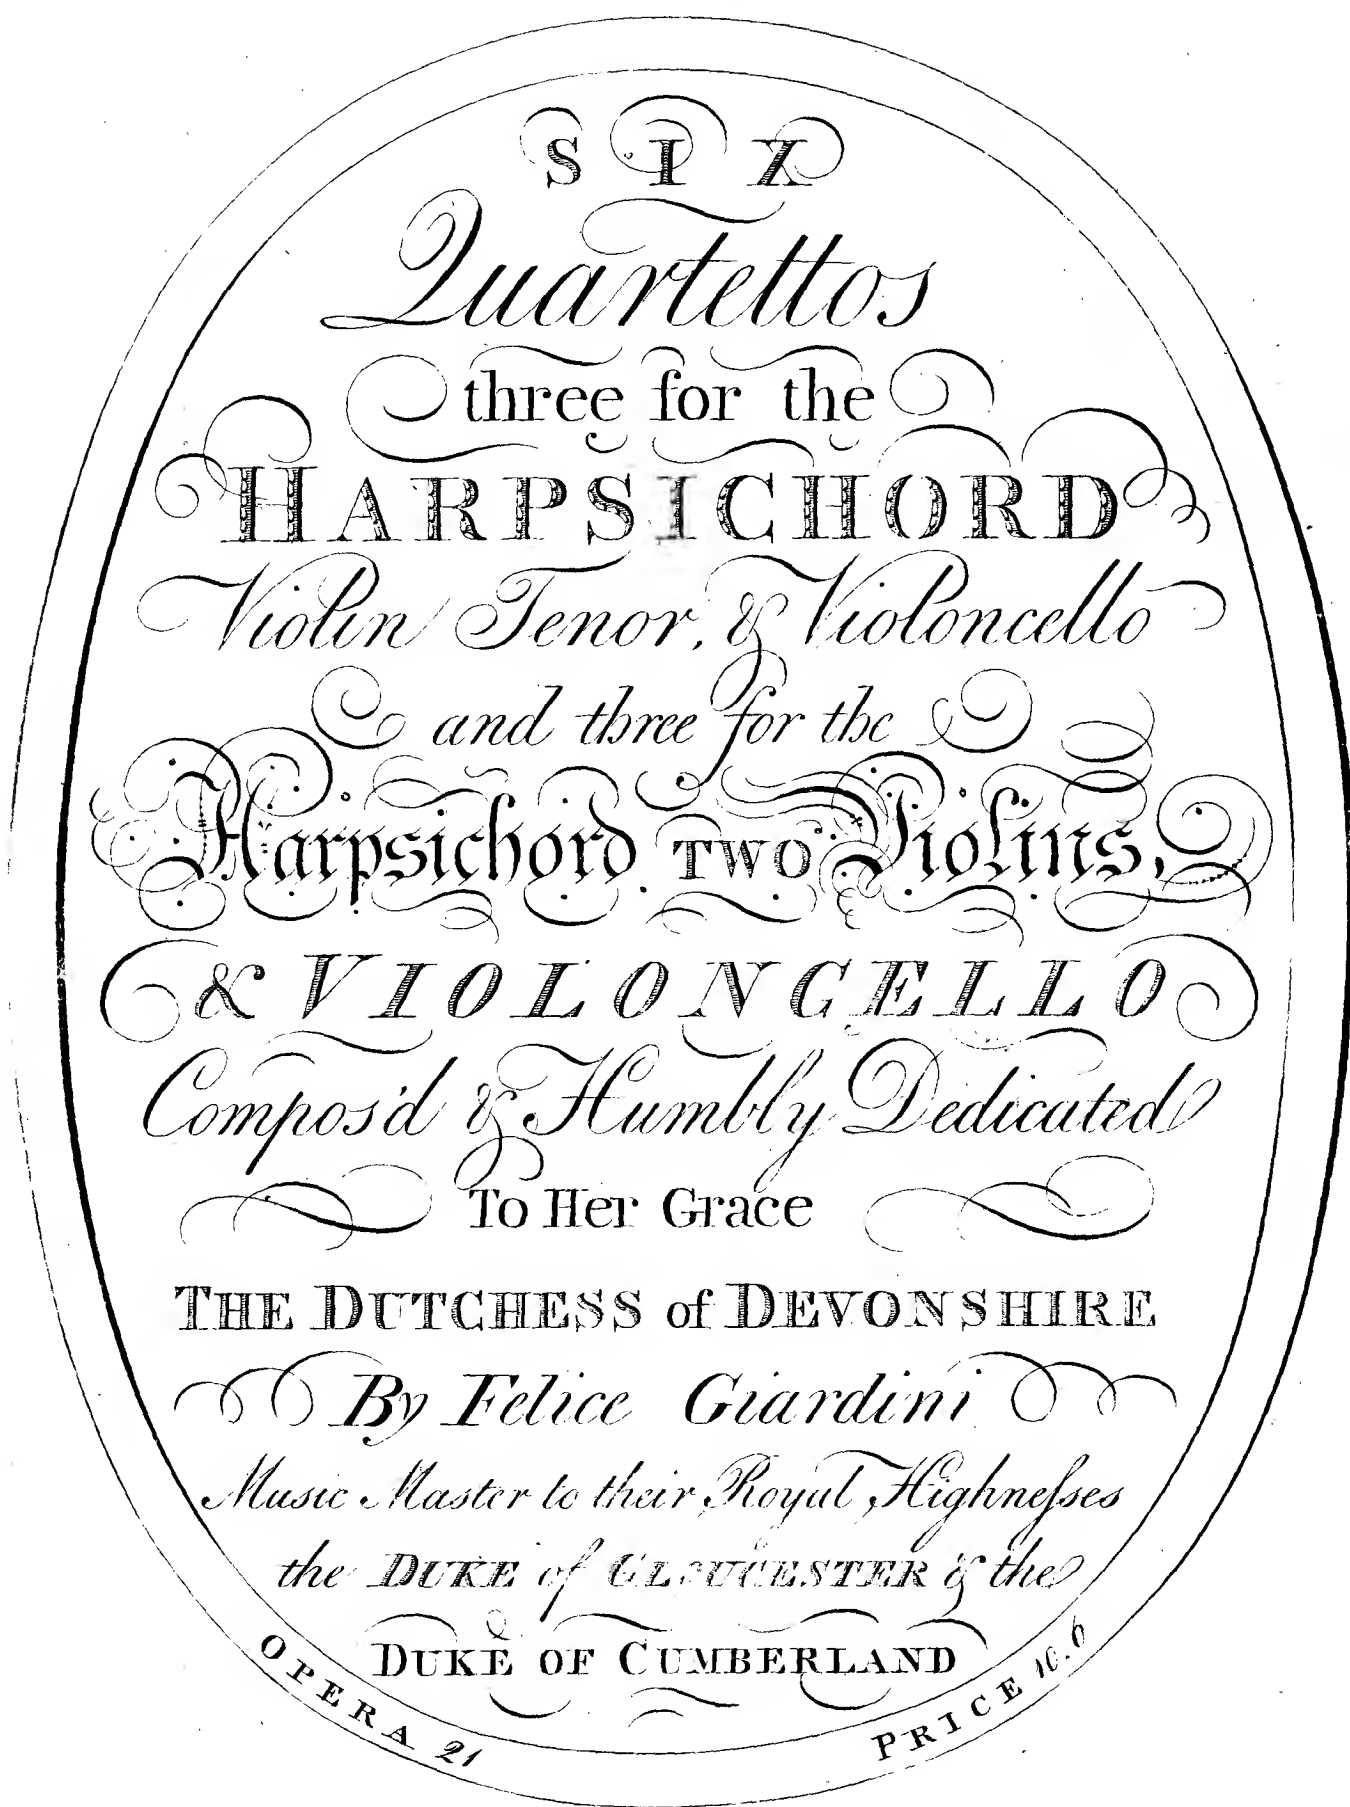 SIX
Quartettos
three for the
HARPSICHORD
Violin Tenor, & Violoncello
and three for the
Harpsichord TWO Violins,
& VIOLONCELLO
Compos'd & Humbly Dedicated
To Her Grace
THE DUTCHESS of DEVONSHIRE
By Felice Giardini
Music Master to their Royal Highneſses
the DUKE of GLOUCESTER & the
DUKE OF CUMBERLAND
OPERA 21
PRICE 10.6